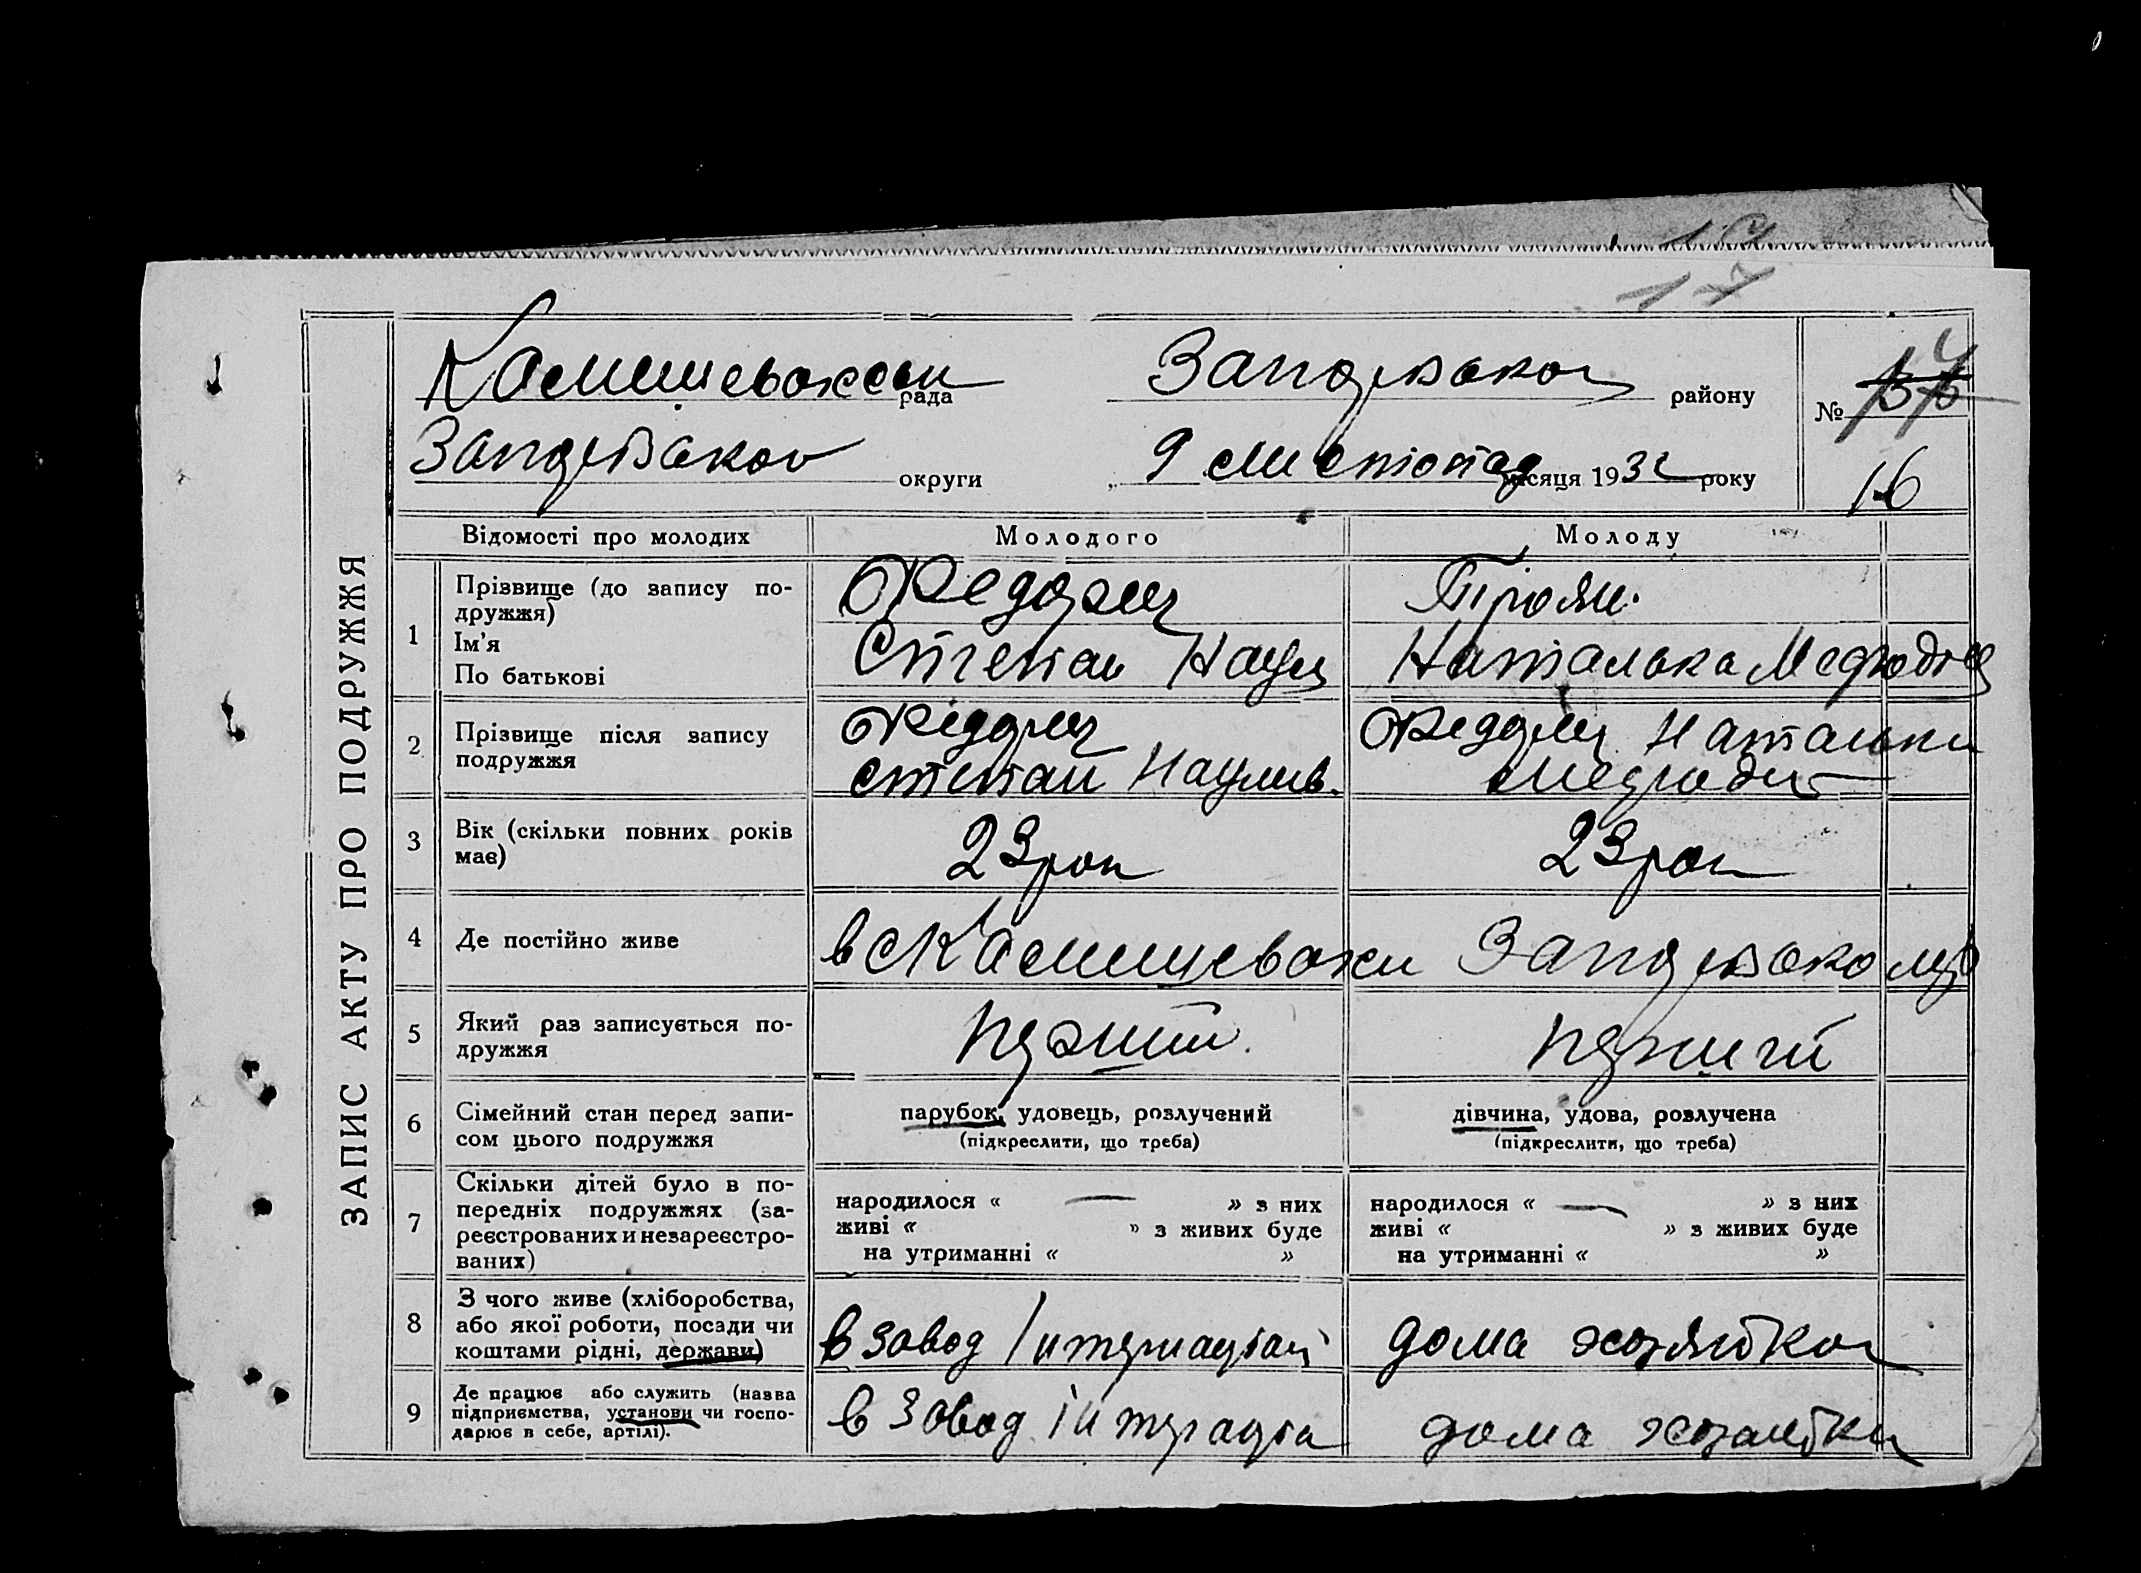 17
Камишеваський рада
Запорізького району
№
16
округи
9 листопад місяця 1932 року
ЗАПИС АКТУ ПРО ПОДРУЖЖЯ
Відомості про молодих
Молодого
Молоду
1
Прізвище (до запису по-
дружжя)
Ім'я
По батькові
Троян.
Степан Наум
Наталька
2
Прізвище після запису
подружжя
Степан Наумів.
Наталька
3
Вік (скільки повних років
має)
23 рок
23 рок
4
Де постійно живе
в с Камишеваха
5
Який раз записується по-
дружжя
перший.
перший
6
Сімейний стан перед запи-
сом цього подружжя
парубок, удовець, розлучений
(підкреслити, що треба)
дівчина, удова, розлучена
(підкреслити, що треба)
7
Скільки дітей було в по-
передніх подружжях (за-
реєстрованих и незареєстро-
ваних)
народилося « — » з них
живі « » з живих буде
на утриманні « »
народилося « — » з них
живі « » з живих буде
на утриманні « »
8
З чого живе (хліборобства,
або якої роботи, посади чи
коштами рідні, держави)
в завод
дома хозяйка
9
Де працює або служить (назва
підприємства, установи чи госпо-
дарює в себе, артілі).
в завод
дома хозяйка